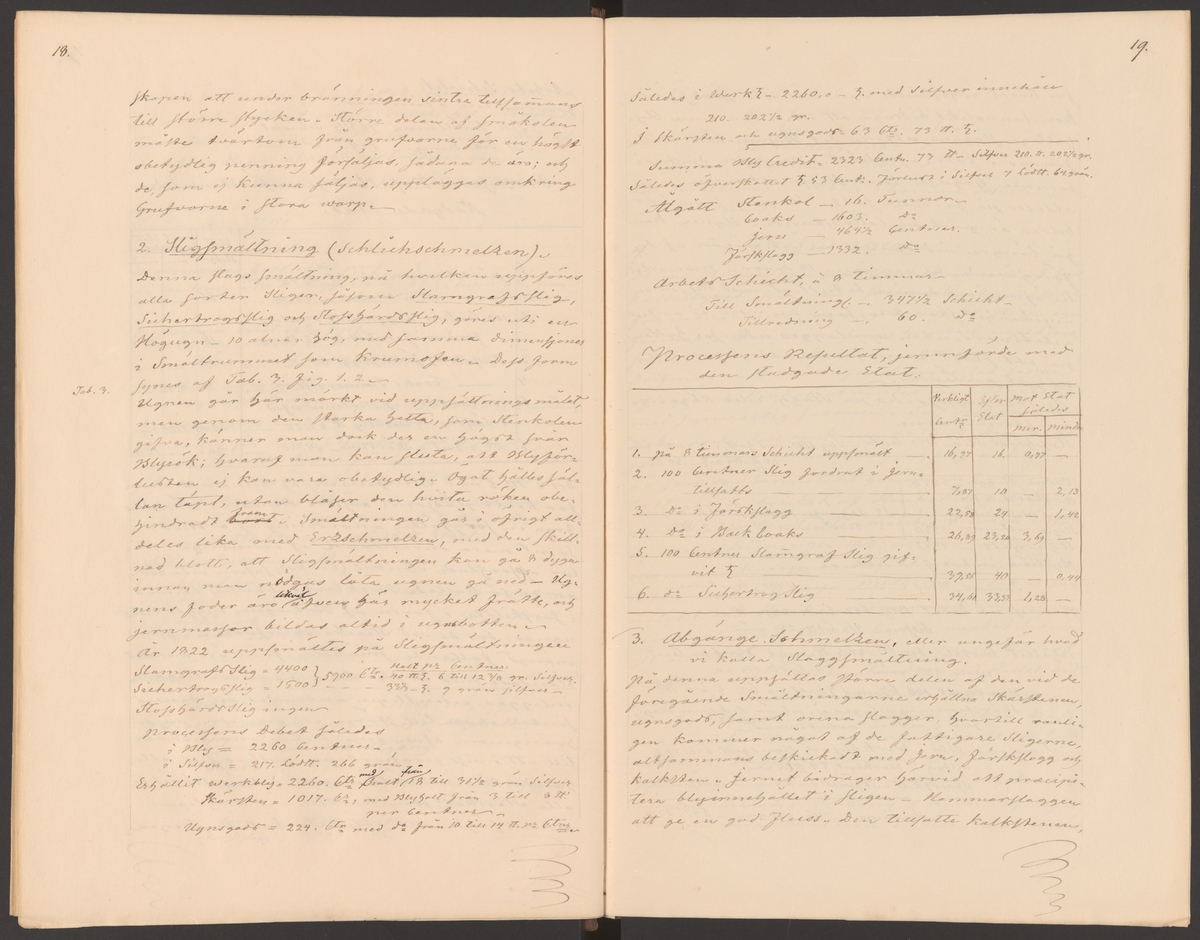 18.
skapen att under bränningen sintra tillsam̄ans
till större stycken. Större delen af småkolen
måste tvärtom från grufvorne för en högst
obetydlig penning försäljas, sådana de äro; och
de, som ej kunna säljas, uppläggas omkring
Grufvorne i stora warp.
2. Sligsmältning (Schlichschmelzen).
Denna slags smältning, på hvilken uppföres
alla sorter Sliger, såsom Slamgrafsslig,
Sichertrogsslig och Stosshärdsslig, göres uti en
Högugn 10 alnar hög, med samma dimensjoner
i Smältrummet som Krumofen. Dess form
Tab. 3.
synes af Tab. 3. fig. 1. 2.
Ugnen går här mörkt vid uppsättningsmålet,
men genom den starka hetta, som Stenkolen
gifva, känner man dock der en högst svår
Blyrök; hvaraf man kan sluta, att Blyför-
lusten ej kan vara obetydlig. Ögat hålles säl-
lan täpt, utan blåser den hvita röken obe-
hindradt fram. Smältningen går i öfrigt all-
deles lika med Erzschmelzen, med den skill-
nad blott, att Sligsmältningen kan gå 8 dygn
innan man nödgas låta ugnen gå ned – Ug-
nens foder äro likväl äfven här mycket frätte, och
jernmassor bildas altid i ugnsbotten.
År 1822 uppsmältes på Sligsmältningen
Slamgrafs Slig = 4400 } 5900 Ctr. Halt pr Centner
Sichertrogsslig = 1500
Stosshärds Slig ingen
Processens Debet således
i Bly = 2260 Centner
i Silfver = 217. Lödtt. 266 grän
Erhållit werkbly = 2260. Ctr med halt från 18 till 31½ grän Silfver
Skärsten = 1017. Ctr, med Blyhalt från 3 till 8 tt:
per Centner
Ugnsgods = 224. Ctr med do från 10 till 14 tt. pr Ctner
19.
Således i Werk = 2260.0 – med Silfver innehåll
210. 202½ gr.
I Skärsten och ugnsgods 63 Ctr. 73 tt.
Summa Bly Credit = 2323 Centn. 73 tt – Silfver 210. tt. 202½ gr.
Således öfverskottet 63 Cent. Förlust i Silfver 7 Lödtt. 64 grän.
Åtgått Stenkol – 16. Tunnor
Coaks – 1603. Do
Jern – 464½ Centner.
Färskslagg – 1332. Do
Arbets Schicht, à 8 timmar
Till Smältning – 347½ Schicht
Tillredning – 60. Do
Processens Resultat, jemnförde med
den stadgade Stat.
Verkligt Centr
Efter Stat
mot Stat således
mer. mindre
1. På 8 timmars Schicht uppsmält – 16,97 16 0,97 –
2. 100 Centner Slig fordrat i Jern-
tillsatts 7,87 10 – 2,13
3. Do i Färskslagg 22,58 24 – 1,42
4. Do i Back Coaks 26,89 23,20 3,69 –
5. 100 Centner Slamgraf Slig gif-
vit 39,56 40 – 0,44
6. Do Sichertrog Slig 34,61 33,33 1,28 –
3. Abgänge Schmelzen, eller ungefär hvad
vi kalla Slaggsmältning.
På denna uppsättas större delen af den vid de
föregående Smältningarne erhållna Skärstenen,
ugnsgods, samt orena slagger, hvartill vanli-
gen kommer något af de fattigare Sligerne,
altsammans beskickadt med Jern, Färskslagg och
kalksten. Jernet bidrager härvid att præcipi-
tera blyinnehållet i sligen – Hammarslaggen
att ge en god fluss. Den tillsatte kalkstenen,